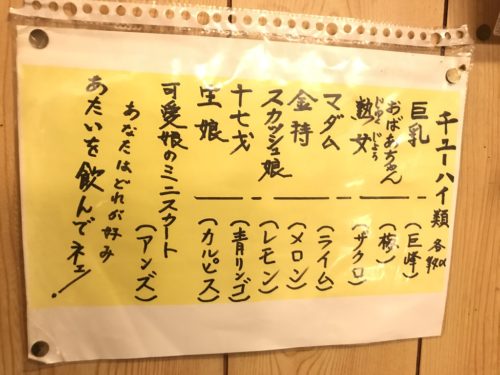 チューハイ類 各
巨乳 ――― (巨峰)
おばあちゃん ― (梅)
熟女 ――― (ザクロ)
マダム ――― (ライム)
金持 ――― (メロン)
スカッシュ娘 ― (レモン)
十七才 ――― (青リンゴ)
生娘 ――― (カルピス)
可愛娘のミニスカート (アンズ)
あなたはどれがお好み
あたいを飲んでネェ!